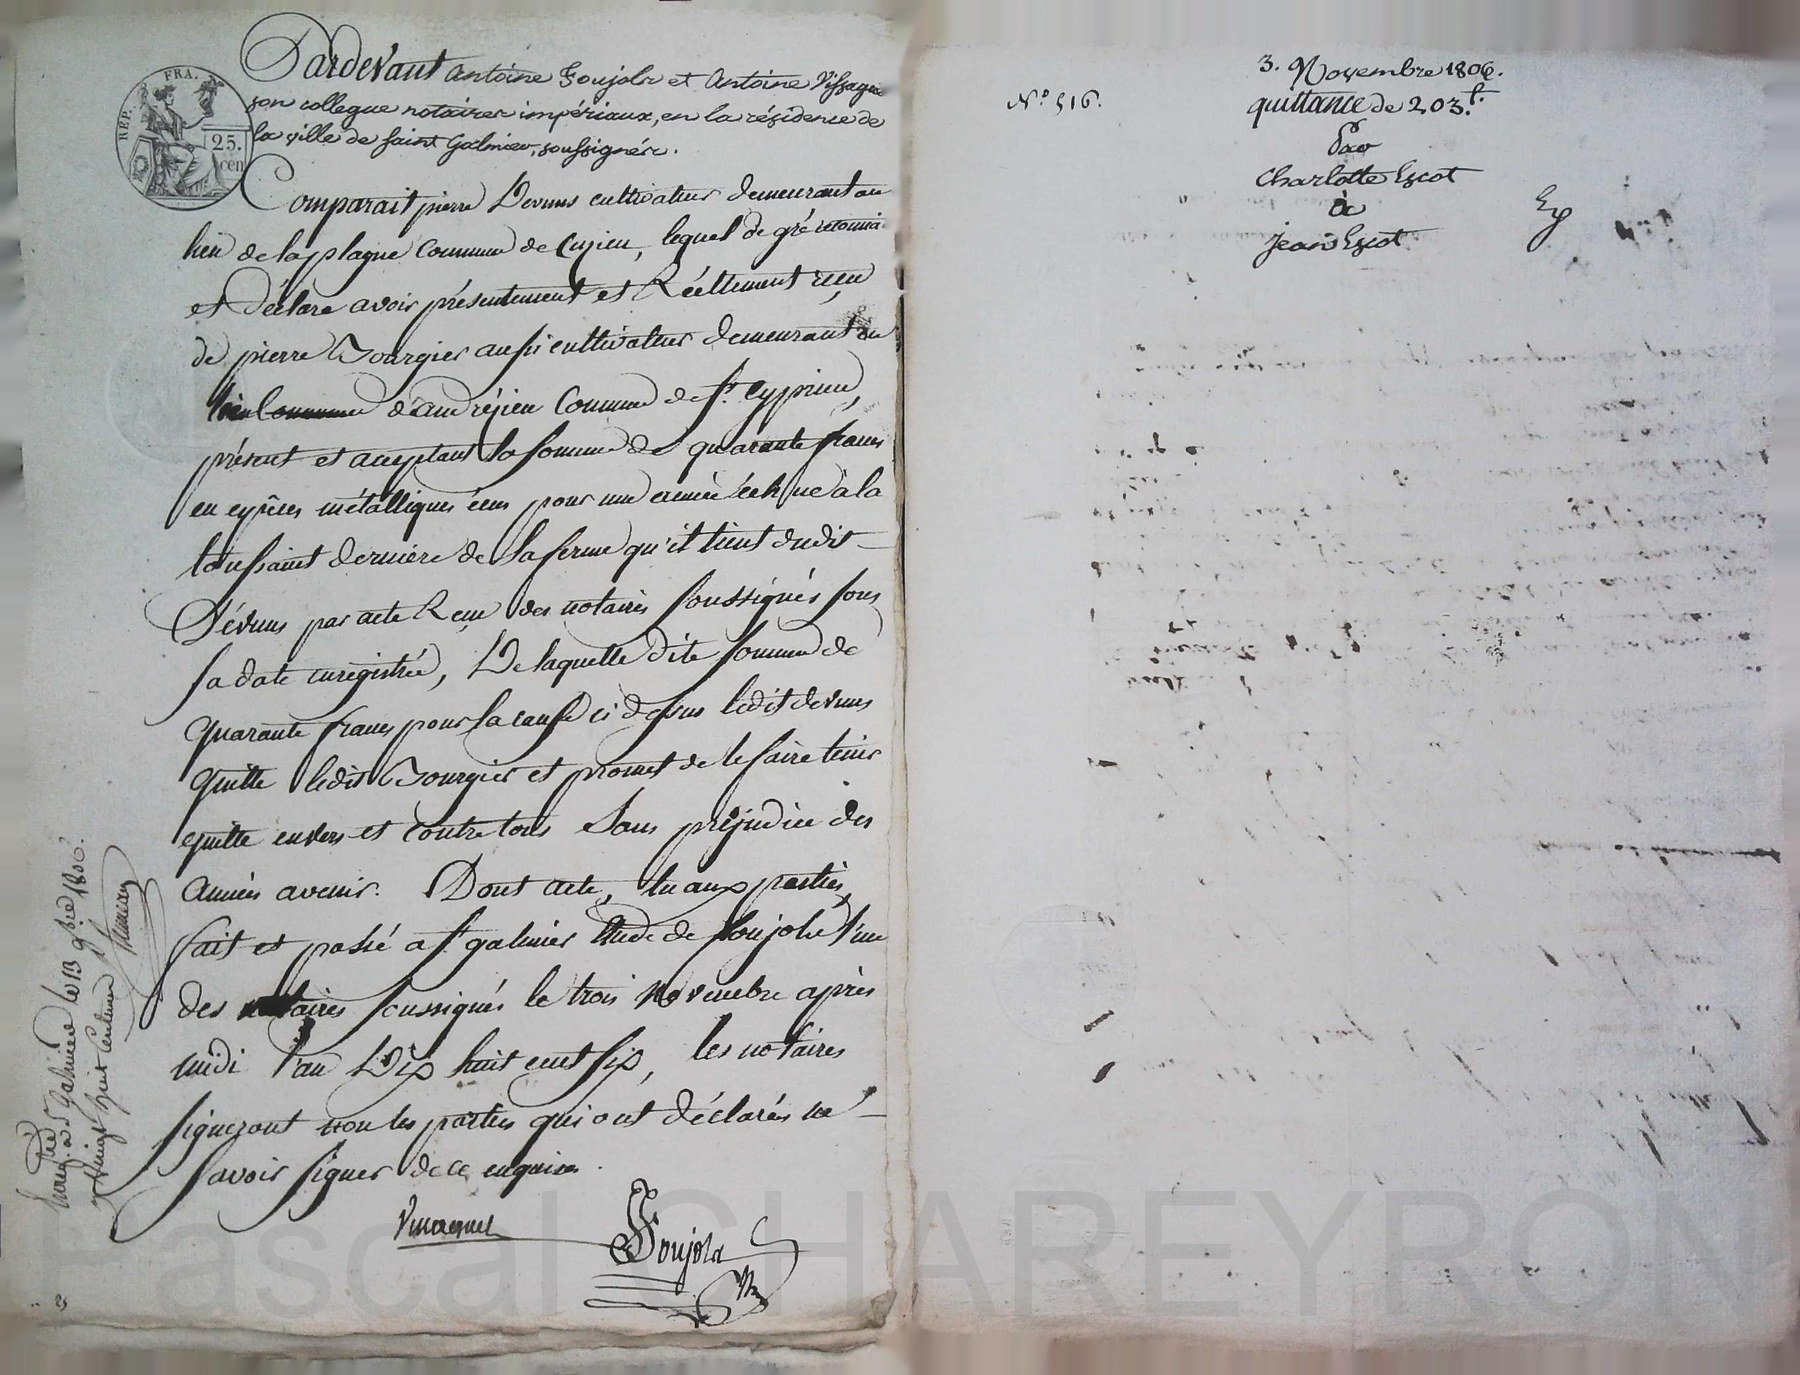 REP. FRA.
25.
cen
Pardevant antoine Foujols et Antoine
son collegue notaires impériaux, en la résidence de
la ville de saint Galmier, soussignés.
Comparait pierre Devuns cultivateur demeurant au
lieu de la plagne Commune de Cuzieu, lequel de gré
et déclare avoir présentement et Réellement reçu
de pierre aussi cultivateur demeurant au
d'andrézieu Commune de St. Cyprien,
présent et aceptant la somme de quarante francs
en espèces métalliques pour une année échue à la
toussaint dernière de la ferme qu'il tient dudit
Dévuns par acte Reçu des notaires soussignés sous
sa date enregistrée, De laquelle dite somme de
quarante francs pour la cause ci dessus ledit devuns
quitte ledit et promet de le faire tenir
quitte envers et contre tous sans préjudice des
années avenir. Dont acte, lu aux parties,
fait et passé a St galmier étude de foujols l'un
des notaires soussignés le trois novembre après
midi l'an Dix huit cent six, les notaires
signeront non les parties qui ont déclarés ne
savoir signer de ce enquises.
Foujols
Enreg. tré a St Galmier le 13 9bre 1806.
N° 516.
3. Novembre 1806.
quittance de 203 f.
Par
Charlotte Escot
à
Jean Escot
Pascal CHAREYRON